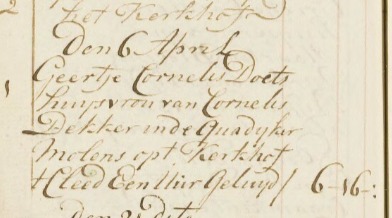 2
het Kerkhoff
Den 6 April
1 Geertje Cornelis Doets
huijsvrou van Cornelis
Dekker inde Quadijker
Molens opt Kerkhof
t Cleed Een Uir Geluyd / 6-16-:
den